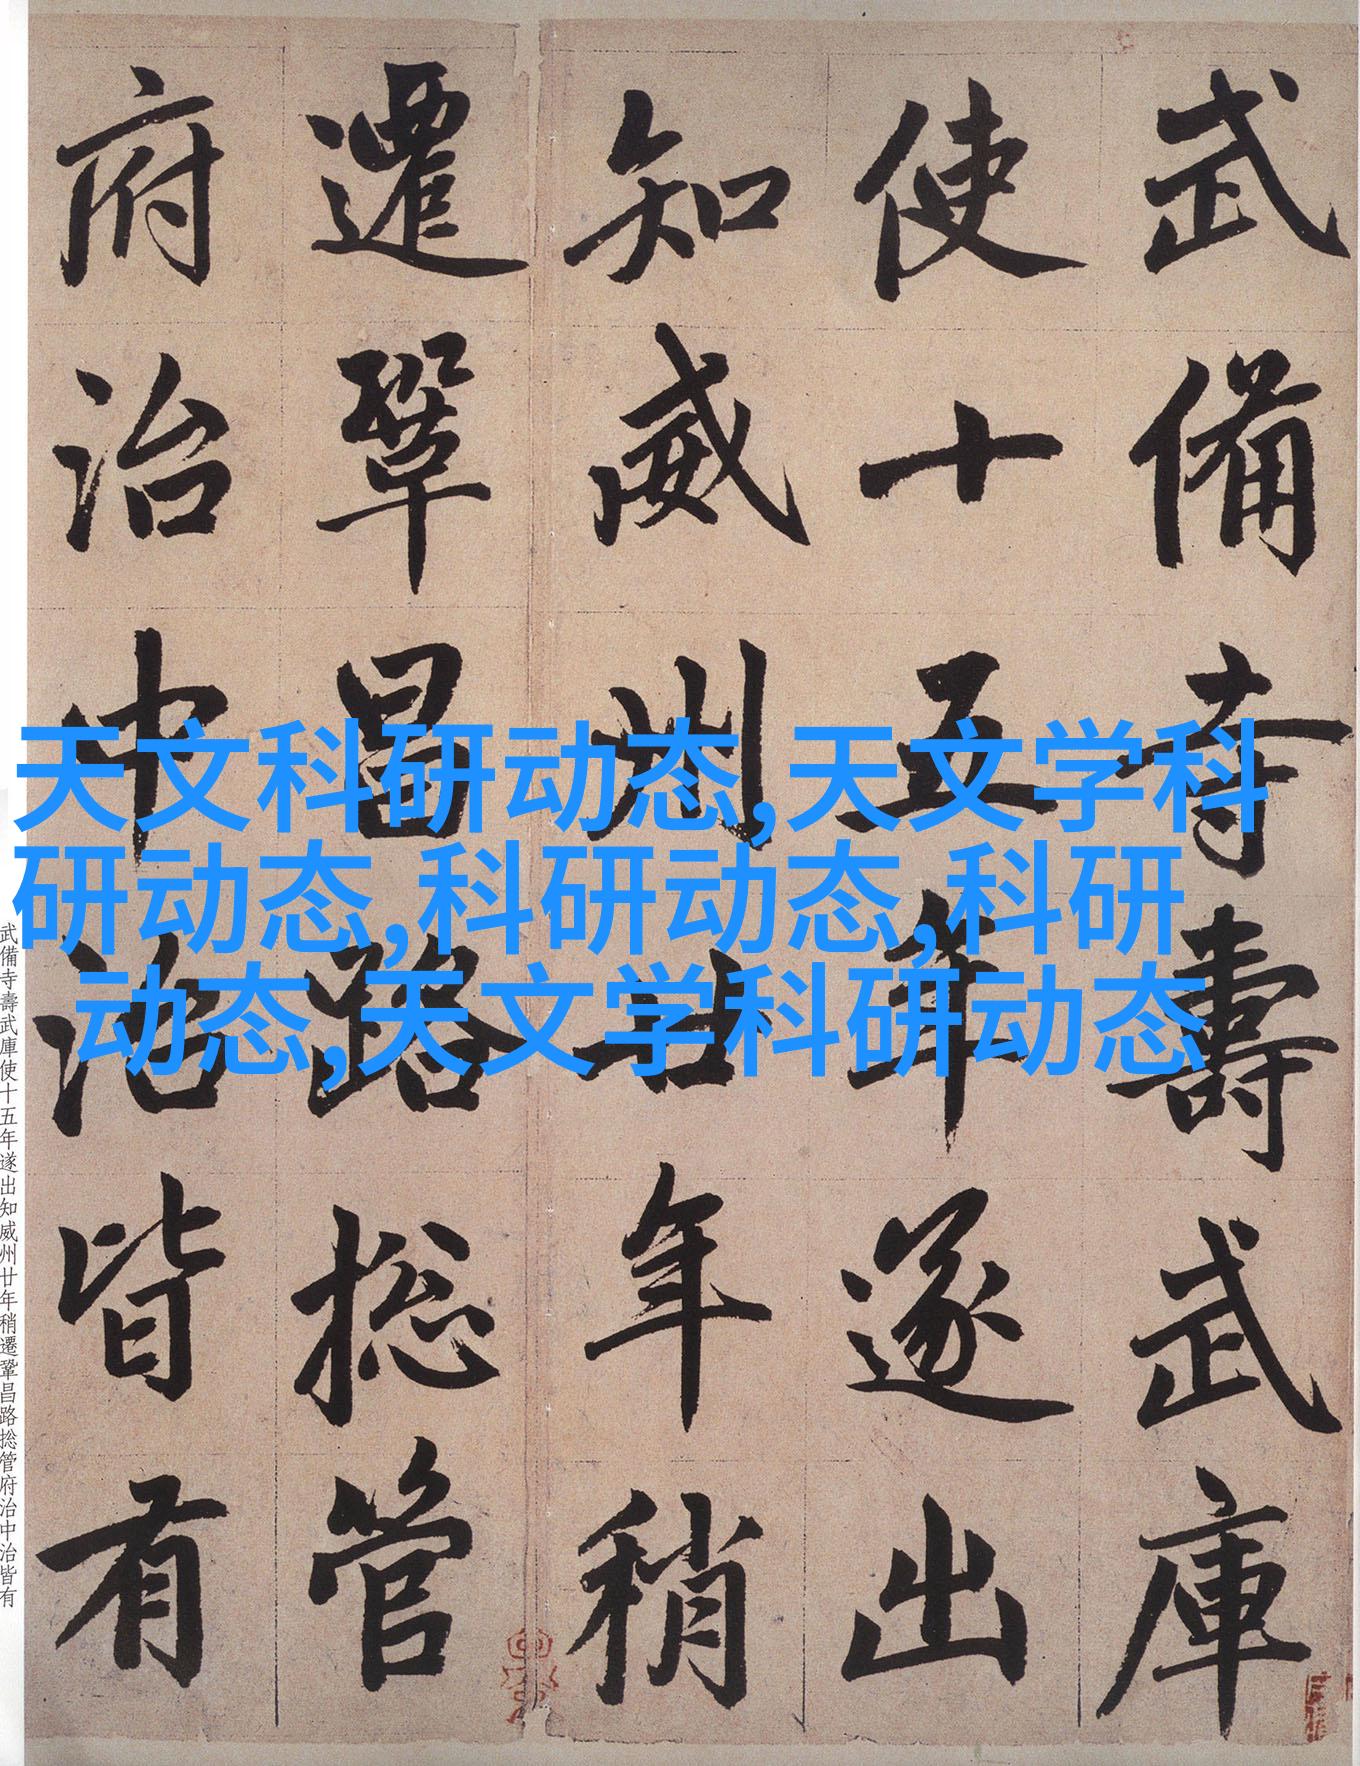 武備寺壽武庫
使十五年遂出
知威州廿年稍
遷鞏昌路捴管
府治中治皆有
天文科研动态,天文学科
研动态,科研动态,科研
动态,天文学科研动态
武備寺壽武庫使十五年遂出知威州廿年稍遷鞏昌路捴管府治中治皆有